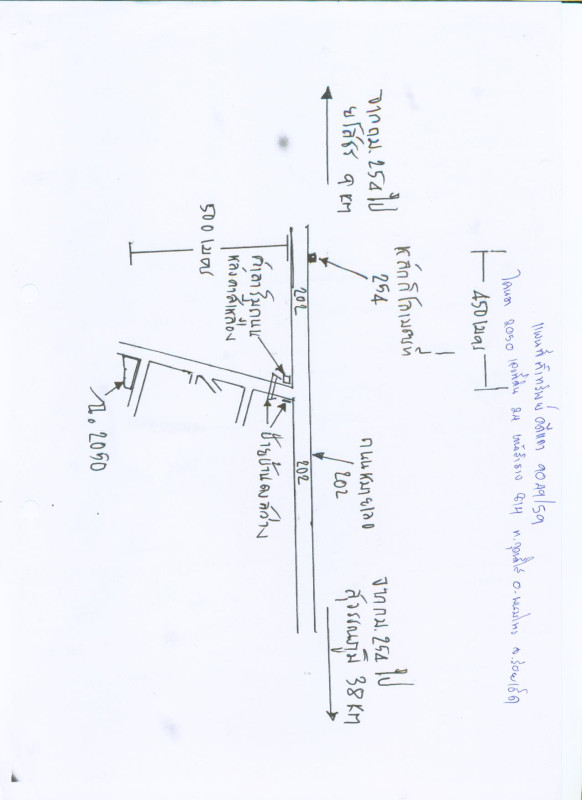 แผนที่ สำทรัพย์ คดีแดง ๑๐๘๑/59
โฉนด 2050 เลขที่ดิน 24 หน้าสำรวจ 814 ต.กุดน้ำใส อ.พนมไพร จ.ร้อยเอ็ด
450 เมตร
จากกม. 254 ไป
ยโสธร 9 KM
หลักกิโลเมตรที่
254
ถนนหมายเลข
202
จากกม. 254 ไป
สุวรรณภูมิ 38 KM
202
202
500 เมตร
ศาลาริมถนน
หลังคาสีเหลือง
ป้ายบ้านดงสว่าง
น. 2050